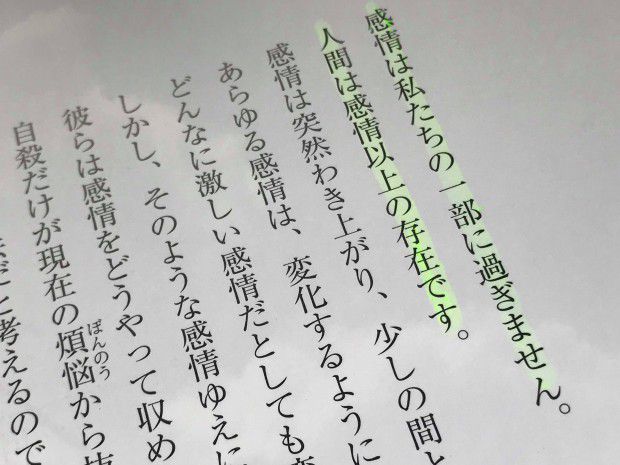 感情は私たちの一部に過ぎません。
人間は感情以上の存在です。
感情は突然わき上がり、少しの間と
あらゆる感情は、変化するように
どんなに激しい感情だとしても
しかし、そのような感情ゆえに
彼らは感情をどうやって収め
自殺だけが現在の煩悩から
ぼんのう
だと考えるので